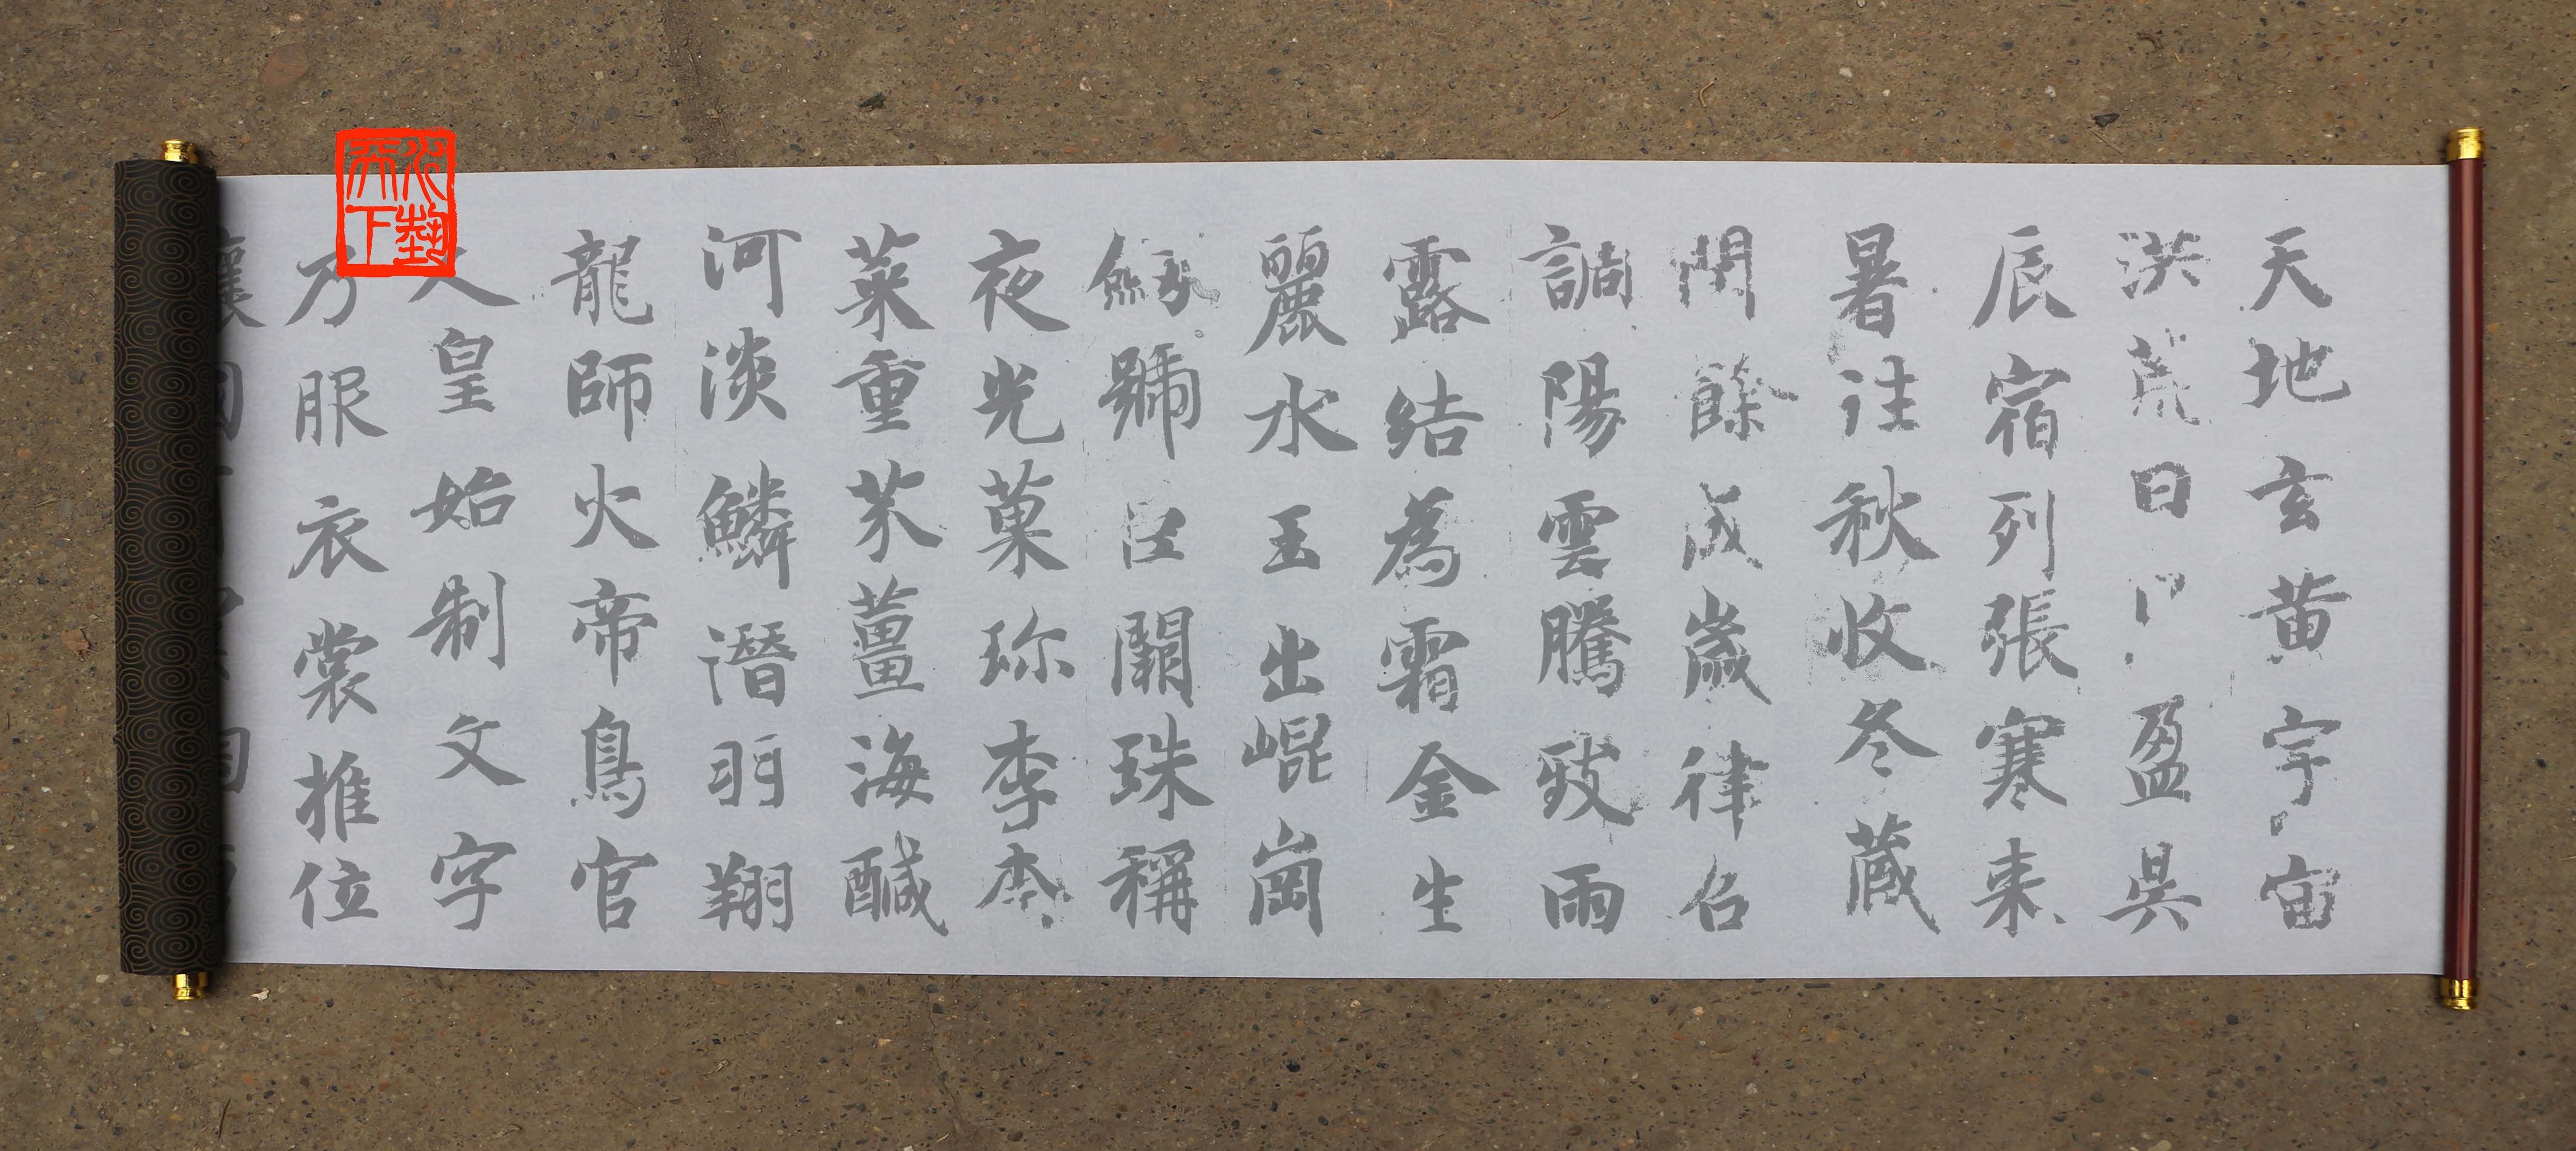 天地玄黄宇宙
洪荒日盈昃
辰宿列張寒来
暑往秋收冬蔵
閏餘成歲律召
調陽雲騰致雨
露結為霜金生
麗水玉出崐崗
劔號巨闕珠稱
夜光菓珎李柰
菜重芥薑海醎
河淡鱗潛羽翔
龍師火帝鳥官
人皇始制文字
乃服衣裳推位
天下